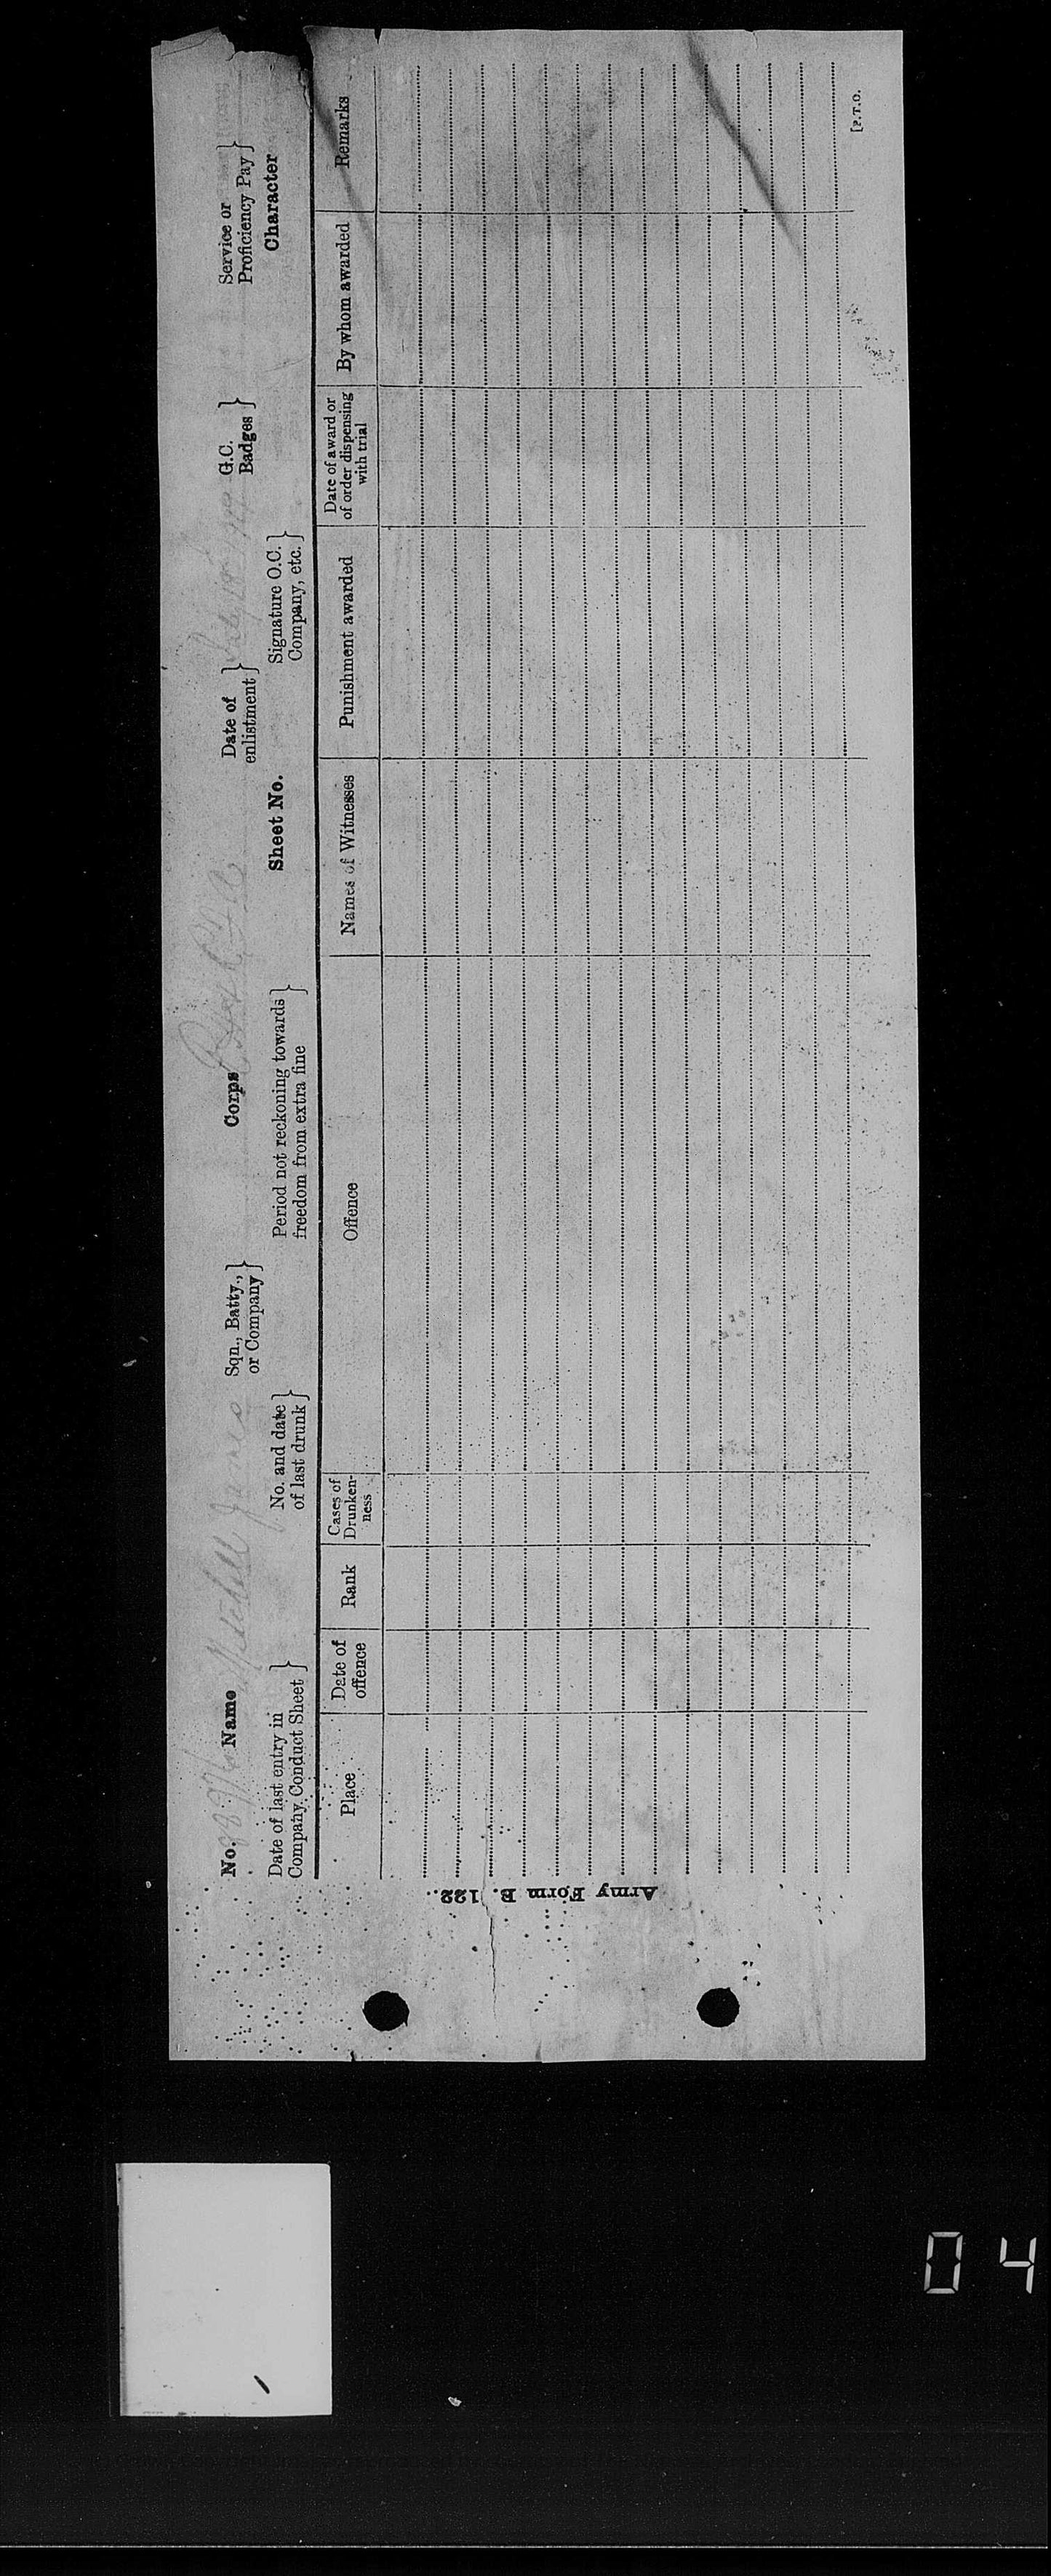 No. Name Mitchell James Sqn., Batty., or Company } Corps Date of enlistment } G.C. Badges } Service or Proficiency Pay }
Date of last entry in Company Conduct Sheet } No. and date of last drunk } Period not reckoning towards freedom from extra fine } Sheet No. Signature O.C. Company, etc. } Character
Place Date of offence Rank Cases of Drunken-ness Offence Names of Witnesses Punishment awarded Date of award or of order dispensing with trial By whom awarded Remarks
[P.T.O.
Army Form B. 122.
04